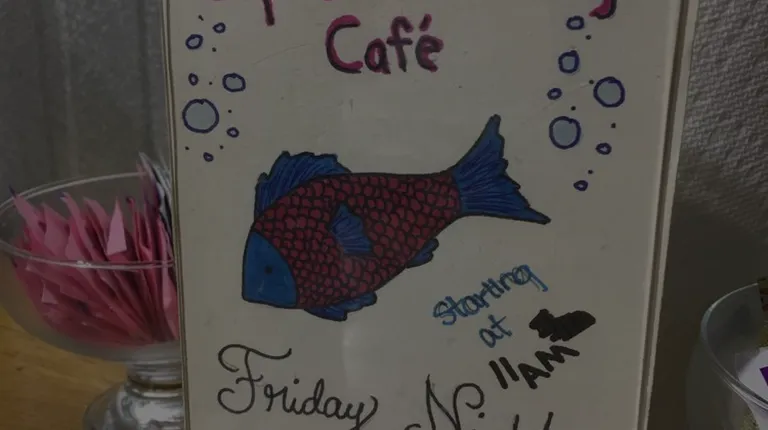 Café
Starting
at
11AM
Friday